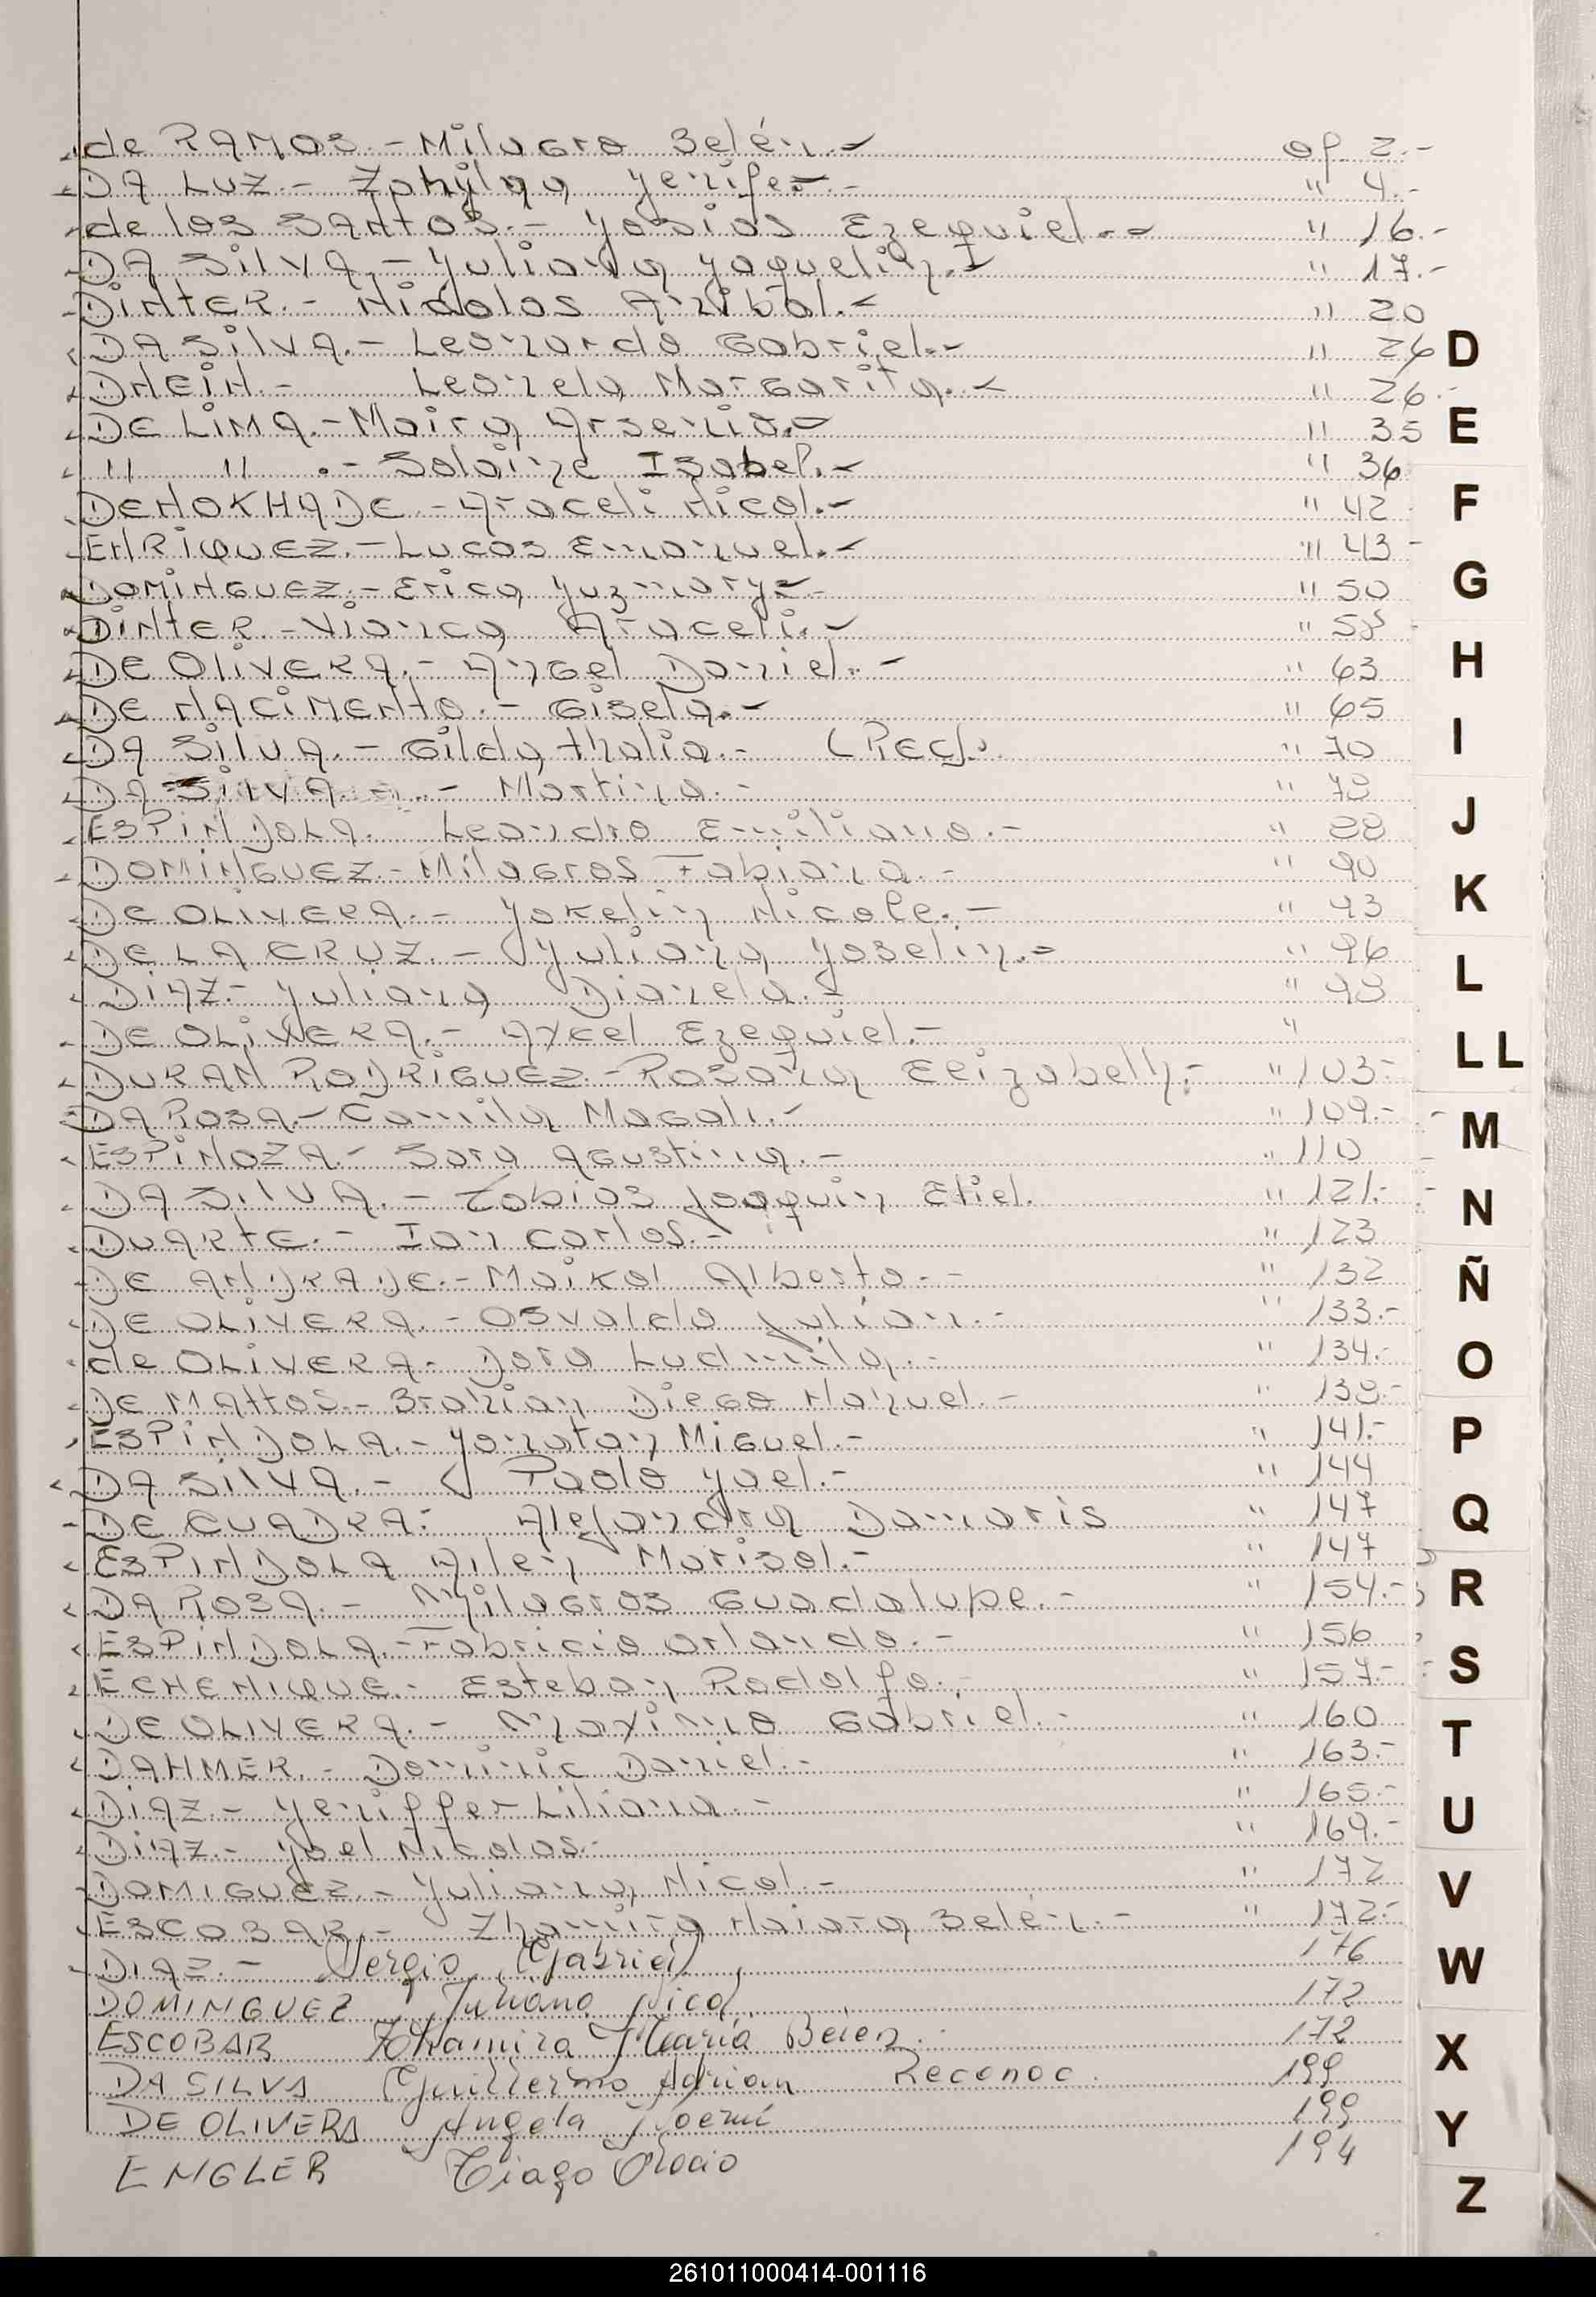 de RAMOS.- Milagro Belén.- of 2.-
DA LUZ.- Yenifer.- " 4.-
de los SANTOS.- Yosias Ezequiel.- " 16.-
DA SILVA.- Yuliana Yaquelin.- " 17.-
DINTER.- Nicolas Anibal.- " 20
DA SILVA.- Leonardo Gabriel.- " 26
DHEIN.- Leonela Margarita.- " 26.
DE LIMA.- Maira Arsenia.- " 35
" " .- Solainze Isabel.- " 36
DENOKHADE.- Araceli Nicol.- " 42
ENRIQUEZ.- Lucas Emanuel.- " 43-
DOMINGUEZ.- Erica Yuzmary.- " 50
DINTER.- Vianca Araceli.- " 58
DE OLIVERA.- Angel Daniel.- " 63
DE NACIMENTO.- Gisela.- " 65
DA SILVA.- Gilda thalia.- (Rec). " 70
DA SILVA.- Martina.- " 78
ESPINDOLA. Leandro Emiliano.- " 88
DOMINGUEZ.- Milagros Fabiana.- " 90
DE OLIVERA.- Yokelin Nicole.- " 93
DE LA CRUZ.- Yuliana Yoselin.- " 96
DIAZ.- Yuliana Dianela.- " 98
DE OLIVERA.- Axel Ezequiel.- "
DURAN RODRIGUEZ.- Rosana Elizabeth.- " 103-
DA ROSA.- Camila Magali.- " 109.-
ESPINOZA.- Sara Agustina.- " 110
DA SILVA.- Tobias Joaquin Etiel. " 121.-
DUARTE.- Ian Carlos.- " 123
DE ANDRADE.- Maikol Alberto.- " 132
DE OLIVERA.- Osvaldo Julian.- " 133.-
de OLIVERA.- Dara Ludmila.- " 134.-
DE MATTOS.- Braian Diego Manuel.- " 138.-
ESPINDOLA.- Yonatan Miguel.- " 141.-
DA SILVA.- Paolo Yael.- " 144
DE CUADRA: Alejandra Damaris " 147
ESPINDOLA Ailen Marisol.- " 147
DA ROSA.- Milagros Guadalupe.- " 154.-
ESPINDOLA.- Fabricio Orlando.- " 156
ECHENIQUE.- Esteban Rodolfo.- " 157-
DE OLIVERA.- Maximo Gabriel.- " 160
DAHMER.- Dominic Daniel.- " 163.-
DIAZ.- Yeniffer Liliana.- " 165.-
DIAZ.- Yoel Nicolas.- " 169.-
DOMIGUEZ.- Yuliana Nicol.- " 172
ESCOBAR.- Zhamira Naiara Belén.- " 172-
DIAZ.- Sergio Gabriel 176
DOMINGUEZ Juliana Nicol 172
ESCOBAR Zhamira Belen 172
DA SILVA Guillermo Adrian Reconoc. 199
DE OLIVERA Angela Noemi 199
ENGLER Tiago Rocio 194
D
E
F
G
H
I
J
K
L
LL
M
N
Ñ
O
P
Q
R
S
T
U
V
W
X
Y
Z
261011000414-001116